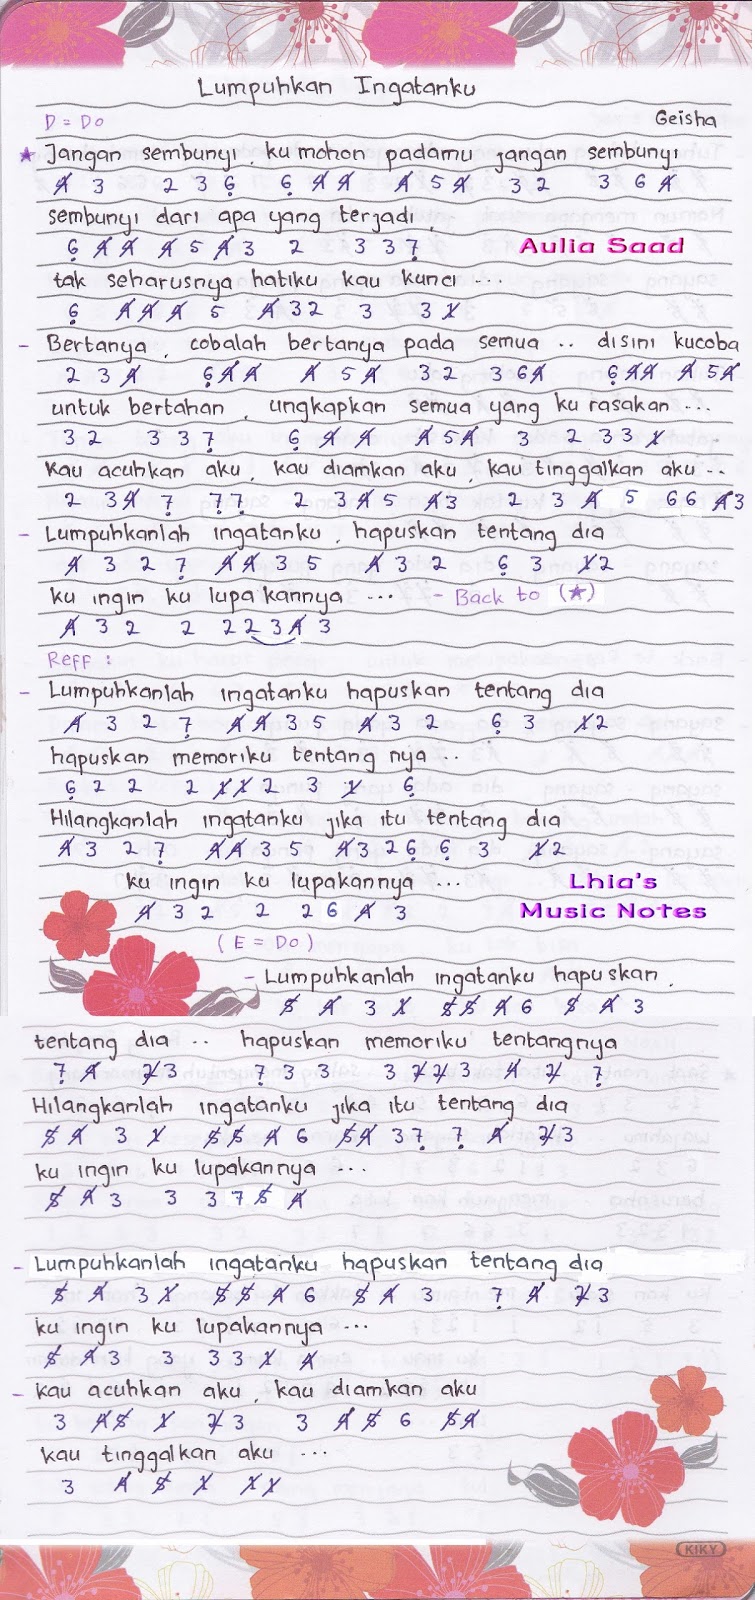 Lumpuhkan Ingatanku
D = Do
Geisha
★ Jangan sembunyi ku mohon padamu jangan sembunyi
4̸ 3 2 3 6̣ 6̣ 4̸ 4̸ 4̸ 5 4̸ 3 2 3 6 4̸
sembunyi dari apa yang terjadi,
6̣ 4̸ 4̸ 4̸ 5 4̸ 3 2 3 3 7̣
Aulia Saad
tak seharusnya hatiku kau kunci ...
6̣ 4̸ 4̸ 4̸ 5 4̸ 3 2 3 3 1̸
- Bertanya, cobalah bertanya pada semua .. disini kucoba
2 3 4̸ 6̣ 4̸ 4̸ 4̸ 5 4̸ 3 2 3 6 4̸ 6̣ 4̸ 4̸ 4̸ 5 4̸
untuk bertahan, ungkapkan semua yang ku rasakan ...
3 2 3 3 7̣ 6̣ 4̸ 4̸ 4̸ 5 4̸ 3 2 3 3 1̸
Kau acuhkan aku, kau diamkan aku, kau tinggalkan aku ..
2 3 4̸ 7̣ 7̣ 7̣ 2 3 4̸ 5 4̸ 3 2 3 4̸ 5 6 6 4̸ 3
- Lumpuhkanlah ingatanku, hapuskan tentang dia
4̸ 3 2 7̣ 4̸ 4̸ 3 5 4̸ 3 2 6̣ 3 1̸ 2
ku ingin ku lupakannya ... - Back to (★)
4̸ 3 2 2 2 2 3 4̸ 3
Reff :
- Lumpuhkanlah ingatanku hapuskan tentang dia
4̸ 3 2 7̣ 4̸ 4̸ 3 5 4̸ 3 2 6̣ 3 1̸ 2
hapuskan memoriku tentang nya ..
6̣ 2 2 2 1̸ 1̸ 2 3 1̸ 6̣
Hilangkanlah ingatanku jika itu tentang dia
4̸ 3 2 7̣ 4̸ 4̸ 3 5 4̸ 3 2 6̣ 6̣ 3 1̸ 2
ku ingin ku lupakannya ...
4̸ 3 2 2 2 6 4̸ 3
Lhia's
Music Notes
( E = Do )
- Lumpuhkanlah ingatanku hapuskan,
5̸ 4̸ 3 1̸ 5̸ 5̸ 4̸ 6 5̸ 4̸ 3
tentang dia .. hapuskan memoriku tentangnya
7̣ 4̸ 2̸ 3 7̣ 3 3 3 2̸ 2̸ 3 4̸ 2̸ 7̣
Hilangkanlah ingatanku jika itu tentang dia
5̸ 4̸ 3 1̸ 5̸ 5̸ 4̸ 6 5̸ 4̸ 3 7̣ 7̣ 4̸ 2̸ 3
ku ingin ku lupakannya ...
5̸ 4̸ 3 3 3 7 5̸ 4̸
- Lumpuhkanlah ingatanku hapuskan tentang dia
5̸ 4̸ 3 1̸ 5̸ 5̸ 4̸ 6 5̸ 4̸ 3 7̣ 4̸ 2̸ 3
ku ingin ku lupakannya ...
5̸ 4̸ 3 3 3 3 1̸ 4̸
- kau acuhkan aku, kau diamkan aku
3 4̸ 5̸ 1̸ 2̸ 3 3 4̸ 5̸ 6 5̸ 4̸
kau tinggalkan aku ...
3 4̸ 5̸ 1̸ 1̸ 1̸
KIKY